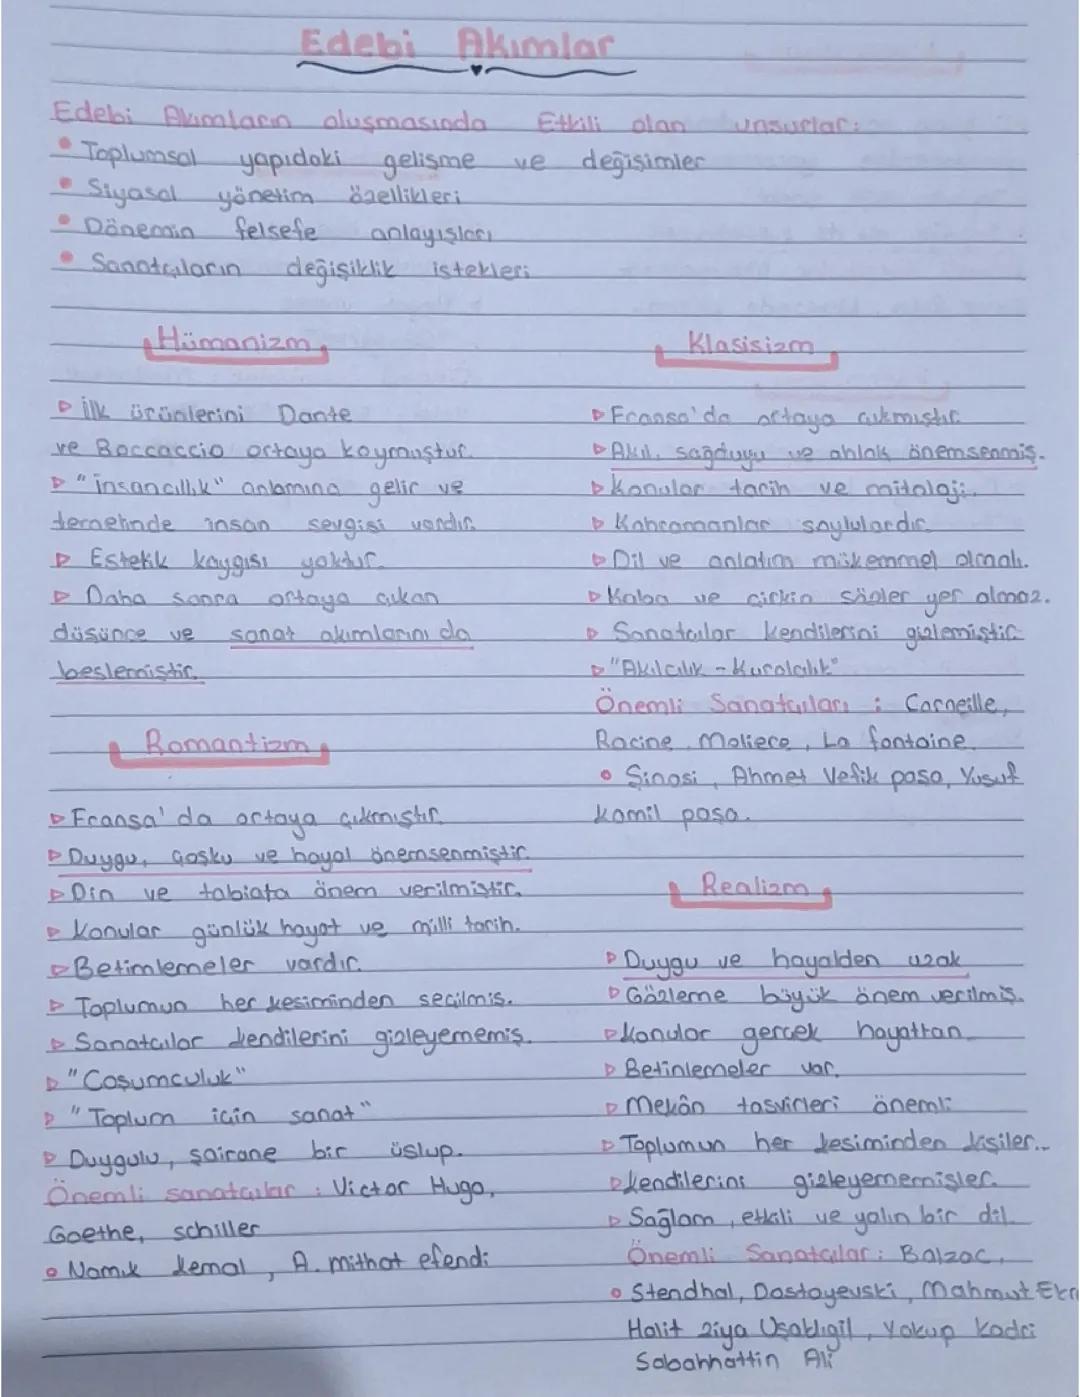 Edebi Akımlar
Edebi Akımların oluşmasında Etkili olan unsurlar:
• Toplumsal yapıdaki gelişme ve değişimler
• Siyasal yönetim özellikleri
• Dönemin felsefe anlayışları
• Sanatçıların değişiklik istekleri
Hümanizm
▷ İlk ürünlerini Dante
ve Boccaccio ortaya koymuştur.
▷ "insancıllık" anlamına gelir ve
temelinde insan sevgisi vardır.
▷ Estetik kaygısı yoktur.
▷ Daha sonra ortaya çıkan
düşünce ve sanat akımlarını da
beslemiştir.
Romantizm
▷ Fransa'da ortaya çıkmıştır.
▷ Duygu, coşku ve hayal önemsenmiştir.
▷ Din ve tabiata önem verilmiştir.
▷ Konular günlük hayat ve milli tarih.
▷ Betimlemeler vardır.
▷ Toplumun her kesiminden seçilmiş.
▷ Sanatcılar kendilerini gizleyememiş.
▷ "Coşumculuk"
▷ "Toplum için sanat"
▷ Duygulu, şairane bir üslup.
Önemli sanatçılar : Victor Hugo,
Goethe, schiller
• Namık kemal, A. mithat efendi
Klasisizm
▷ Fransa'da ortaya çıkmıştır.
▷ Akıl, sağduyu ve ahlak önemsenmiş.
▷ Konular tarih ve mitoloji.
▷ Kahramanlar soylulardır.
▷ Dil ve anlatım mükemmel olmalı.
▷ Kaba ve çirkin sözler yer almaz.
▷ Sanatçılar kendilerini gizlemiştir
▷ "Akılcılık - Kuralcılık"
Önemli Sanatçıları : Corneille,
Racine, Moliere, La fontaine.
• Şinasi, Ahmet Vefik paşa, Yusuf
kamil paşa.
Realizm
▷ Duygu ve hayalden uzak
▷ Gözleme büyük önem verilmiş.
▷ konular gerçek hayattan.
▷ Betinlemeler var.
▷ Mekân tasvirleri önemli
▷ Toplumun her kesiminden kişiler..
▷ kendilerini gizleyememişler.
▷ Sağlam, etkili ve yalın bir dil.
Önemli Sanatçılar: Balzac,
• Stendhal, Dostoyevski, Mahmut Ekr
Halit ziya Uşaklıgil, Yakup Kadri
Sabahhattin Ali